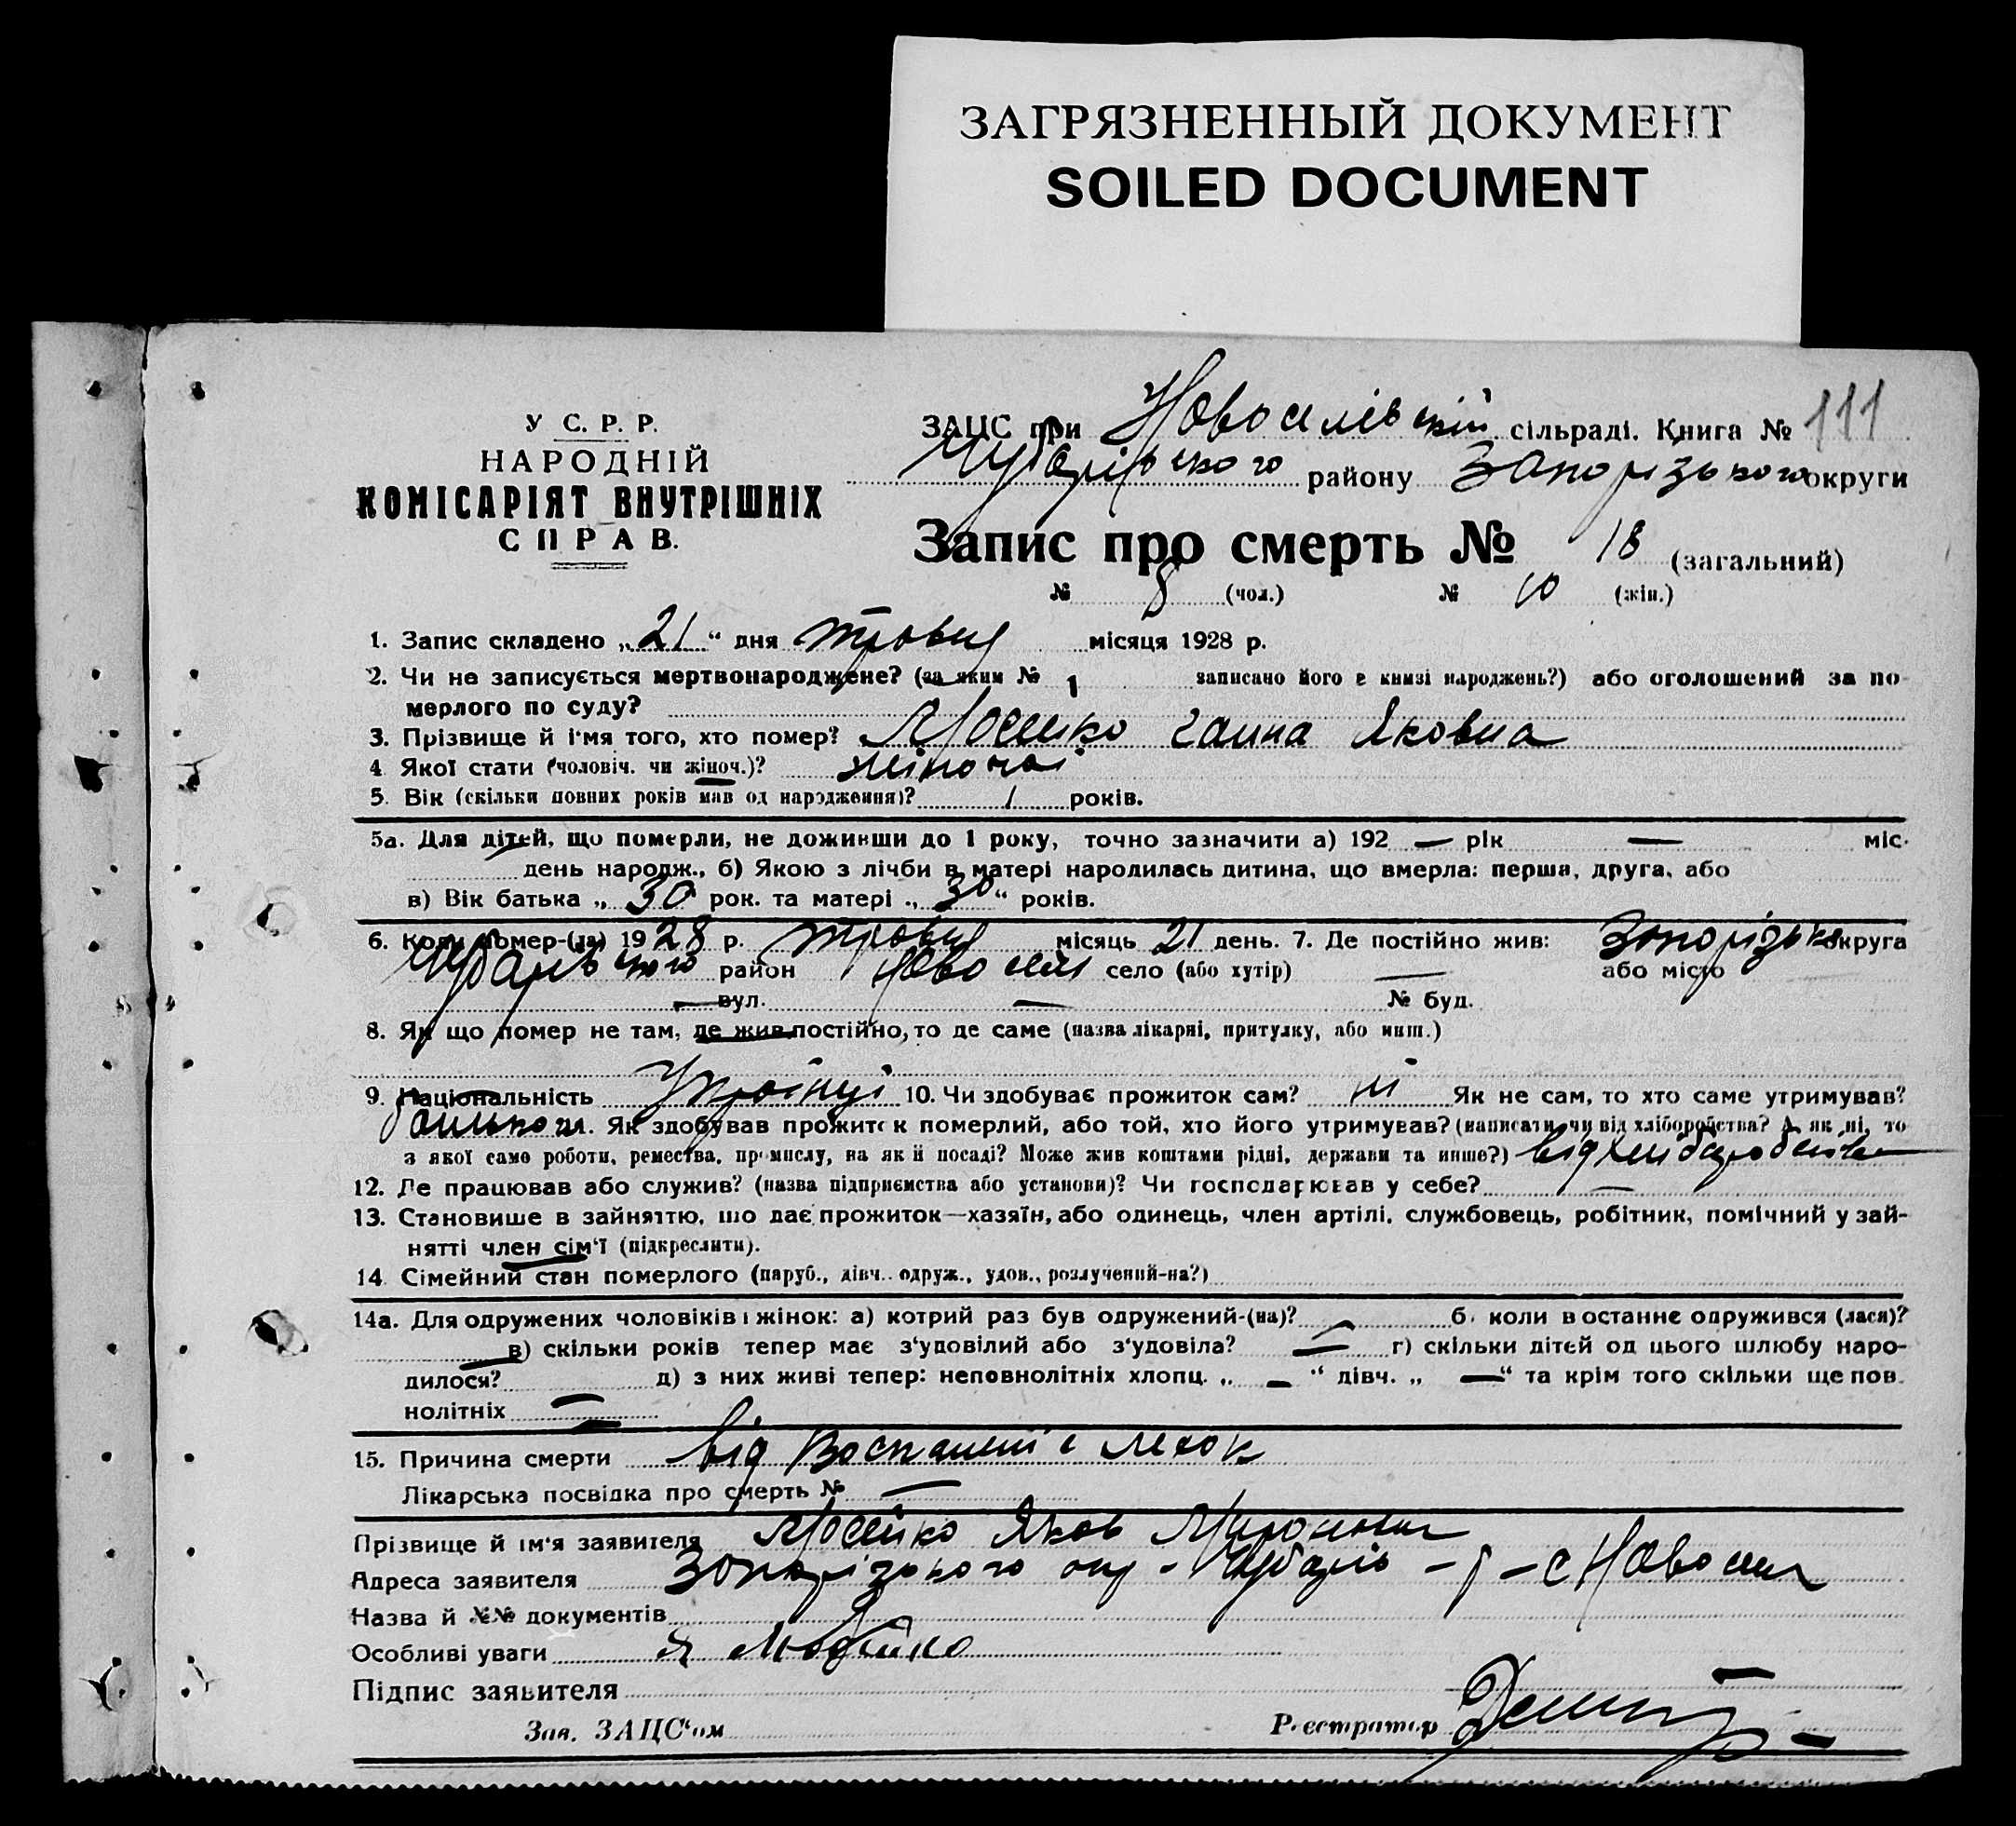 ЗАГРЯЗНЕННЫЙ ДОКУМЕНТ
SOILED DOCUMENT
У С. Р. Р.
НАРОДНІЙ
КОМІСАРІЯТ ВНУТРІШНІХ
СПРАВ.
ЗАЦС при Новоселівській сільраді. Книга № 111
Чубарівського району Запорізького округи
Запис про смерть № 18 (загальний)
№ 8 (чол.) № 10 (жін.)
1. Запис складено „21“ дня травня місяця 1928 р.
2. Чи не записується мертвонароджене? (за яким № 1 записано його в книзі народжень?) або оголошений за по-
мерлого по суду?
3. Прізвище й ім'я того, хто помер? Ганна Яковна
4 Якої стати (чоловіч. чи жіноч.)? жіночої
5. Вік (скільки повних років мав од народження)? 1 років.
5а. Для дітей, що померли, не доживши до 1 року, точно зазначити а) 192 — рік — міс.
день народж., б) Якою з лічби в матері народилась дитина, що вмерла: перша, друга, або
в) Вік батька „ 30 рок. та матері „ 30 “ років.
6. Коли помер-(ла) 1928 р. травня місяць 21 день. 7. Де постійно жив: Запорізька округа
Чубарівського район Новосели село (або хутір) — або місто
— вул. — № буд.
8. Як що помер не там, де жив постійно, то де саме (назва лікарні, притулку, або инш.)
9. Національність Українці 10. Чи здобуває прожиток сам? ні Як не сам, то хто саме утримував?
батьком. Як здобував прожиток померлий, або той, хто його утримував? (написати, чи від хліборобства? А як ні, то
з якої саме роботи, ремества, промислу, на якій посаді? Може жив коштами рідні, держави та инше?) від хліборобства
12. Де працював або служив? (назва підприємства або установи)? Чи господарював у себе? —
13. Становише в зайняттю, що дає прожиток—хазяїн, або одинець, член артілі, службовець, робітник, помічний у зай-
нятті член сім'ї (підкреслити).
14. Сімейний стан померлого (паруб., дівч. одруж., удов., розлучений-на?)
14а. Для одружених чоловіків і жінок: а) котрий раз був одружений-(на)? — б. коли в останнє одружився (лася)?
— в) скільки років тепер має з'удовілий або з'удовіла? — г) скільки дітей од цього шлюбу наро-
дилося? д) з них живі тепер: неповнолітніх хлопц. „ — “ дівч. „ — “ та крім того скільки ще пов.
нолітніх —
15. Причина смерти від Воспаленія легок
Лікарська посвідка про смерть № —
Прізвище й ім'я заявителя Яков Миронович
Адреса заявителя Запорізького окр - Чубарів - р - с Новосели
Назва й №№ документів
Особливі уваги Я
Підпис заявителя
Зав. ЗАЦС'ом
Реєстратор